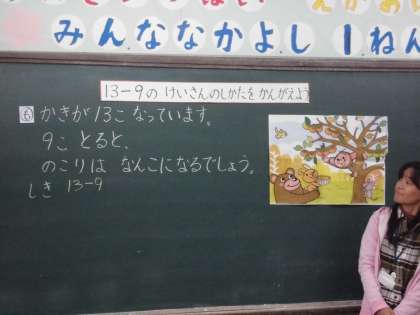 みんななかよし1ねん
13-9の けいさんのしかたを かんがえよう
⑥ かきが 13こ なっています。
9こ とると、
のこりは なんこになるでしょう。
しき 13-9